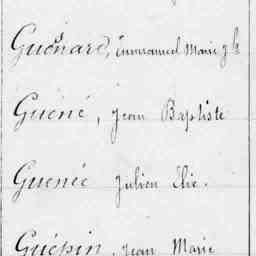 Guénard, Emmanuel Marie Jh
Guéné, Jean Baptiste
Guenée Julien Elie.
Guépin, Jean Marie